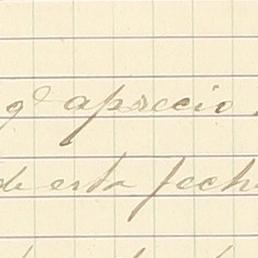 qᵉ aprecio
de esta fech